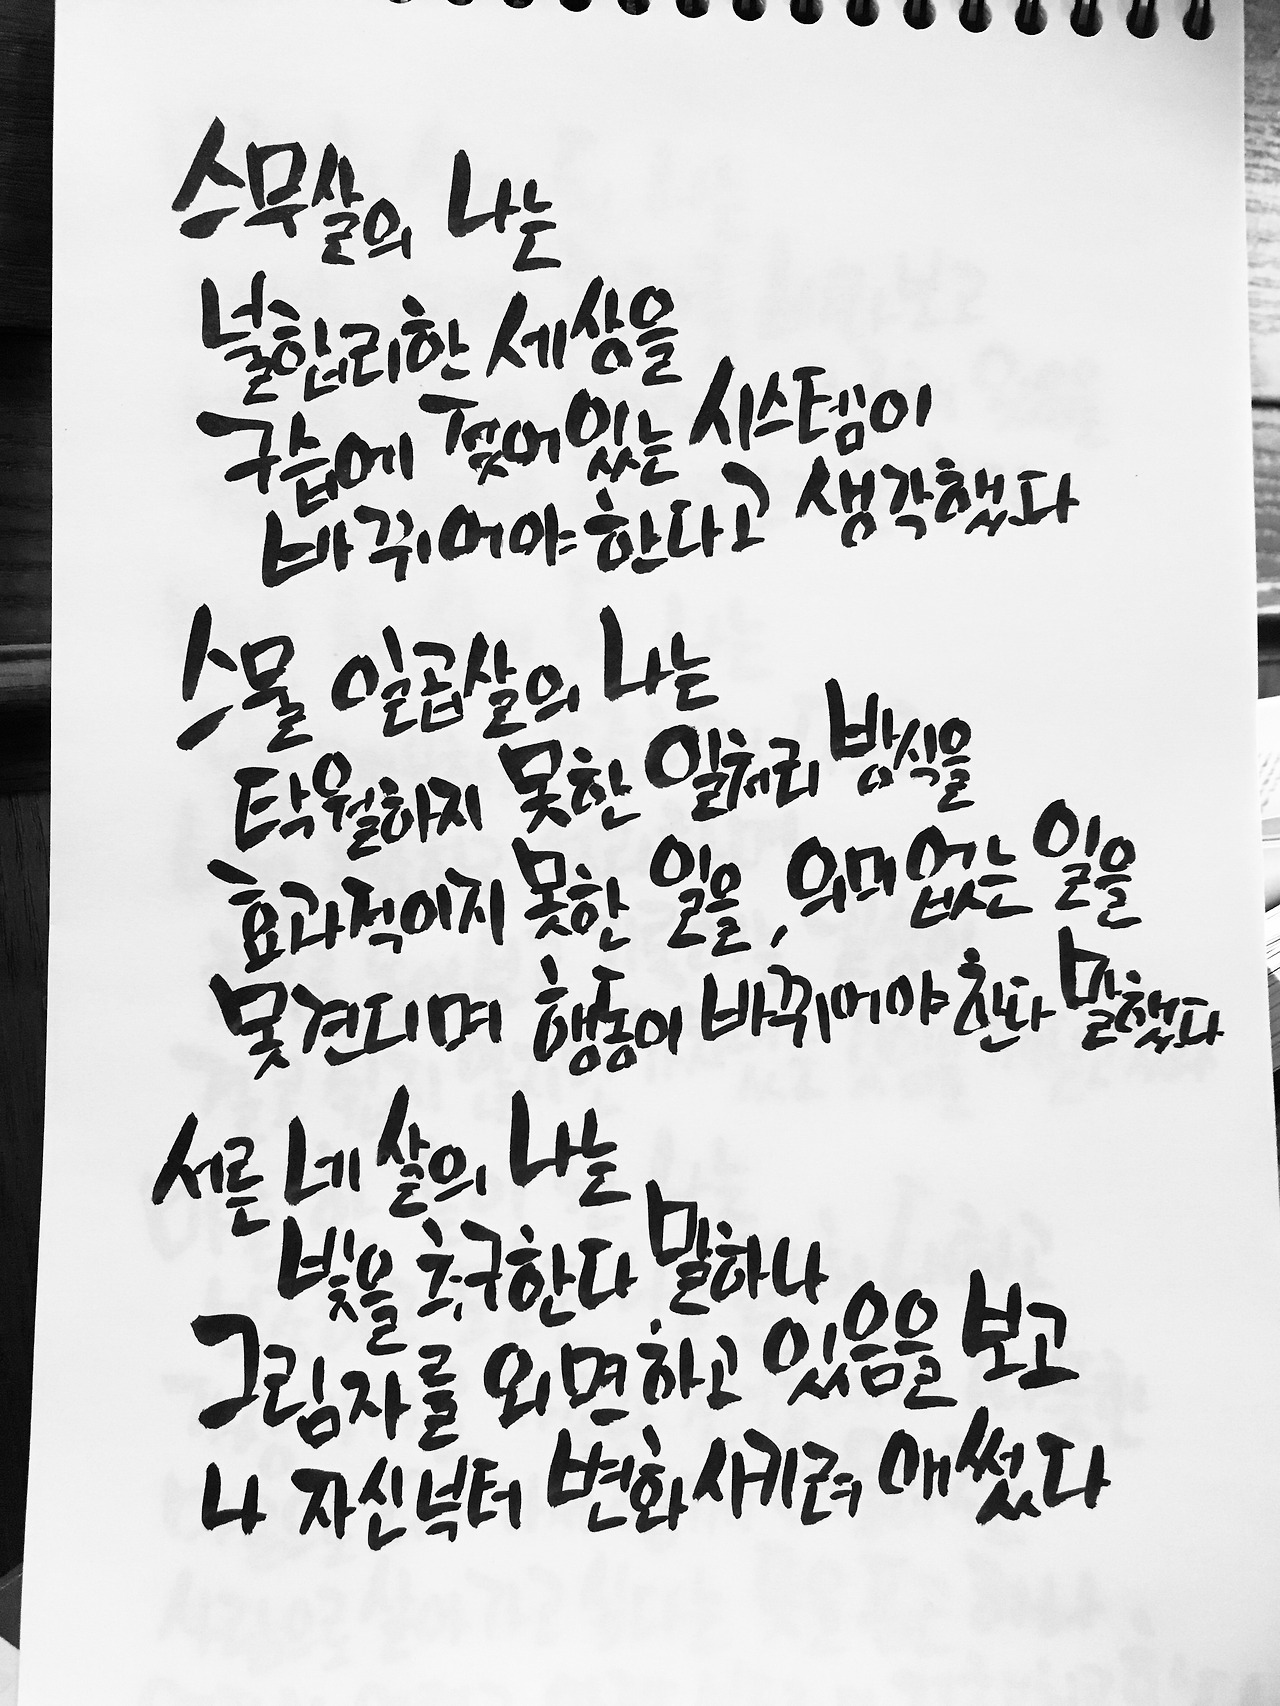 스무살의 나는
불합리한 세상을
구습에 젖어있는 시스템이
바뀌어야한다고 생각했다
스물 일곱살의 나는
탁월하지 못한 일처리 방식을
효과적이지 못한 일을, 의미 없는 일을
못견디며 행동이 바뀌어야 한다 말했다
서른 네 살의 나는
빛을 추구한다 말하나
그림자를 외면하고 있음을 보고
나 자신부터 변화시키려 애썼다